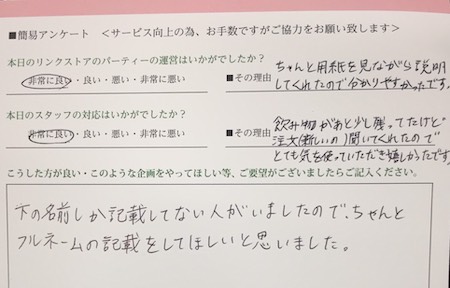 ■簡易アンケート ＜サービス向上の為、お手数ですがご協力をお願い致します＞
本日のリンクストアのパーティーの運営はいかがでしたか？
非常に良い・良い・悪い・非常に悪い
■その理由
ちゃんと用紙を見ながら説明
してくれたので分かりやすかったです。
本日のスタッフの対応はいかがでしたか？
非常に良い・良い・悪い・非常に悪い
■その理由
飲み物があと少し残ってたけど
注文(新しいの)聞いてくれたので
とても気を使っていただき嬉しかったです
こうした方が良い・このような企画をやってほしい等、ご要望がございましたらご記入ください。
下の名前しか記載してない人がいましたので、ちゃんと
フルネームの記載をしてほしいと思いました。